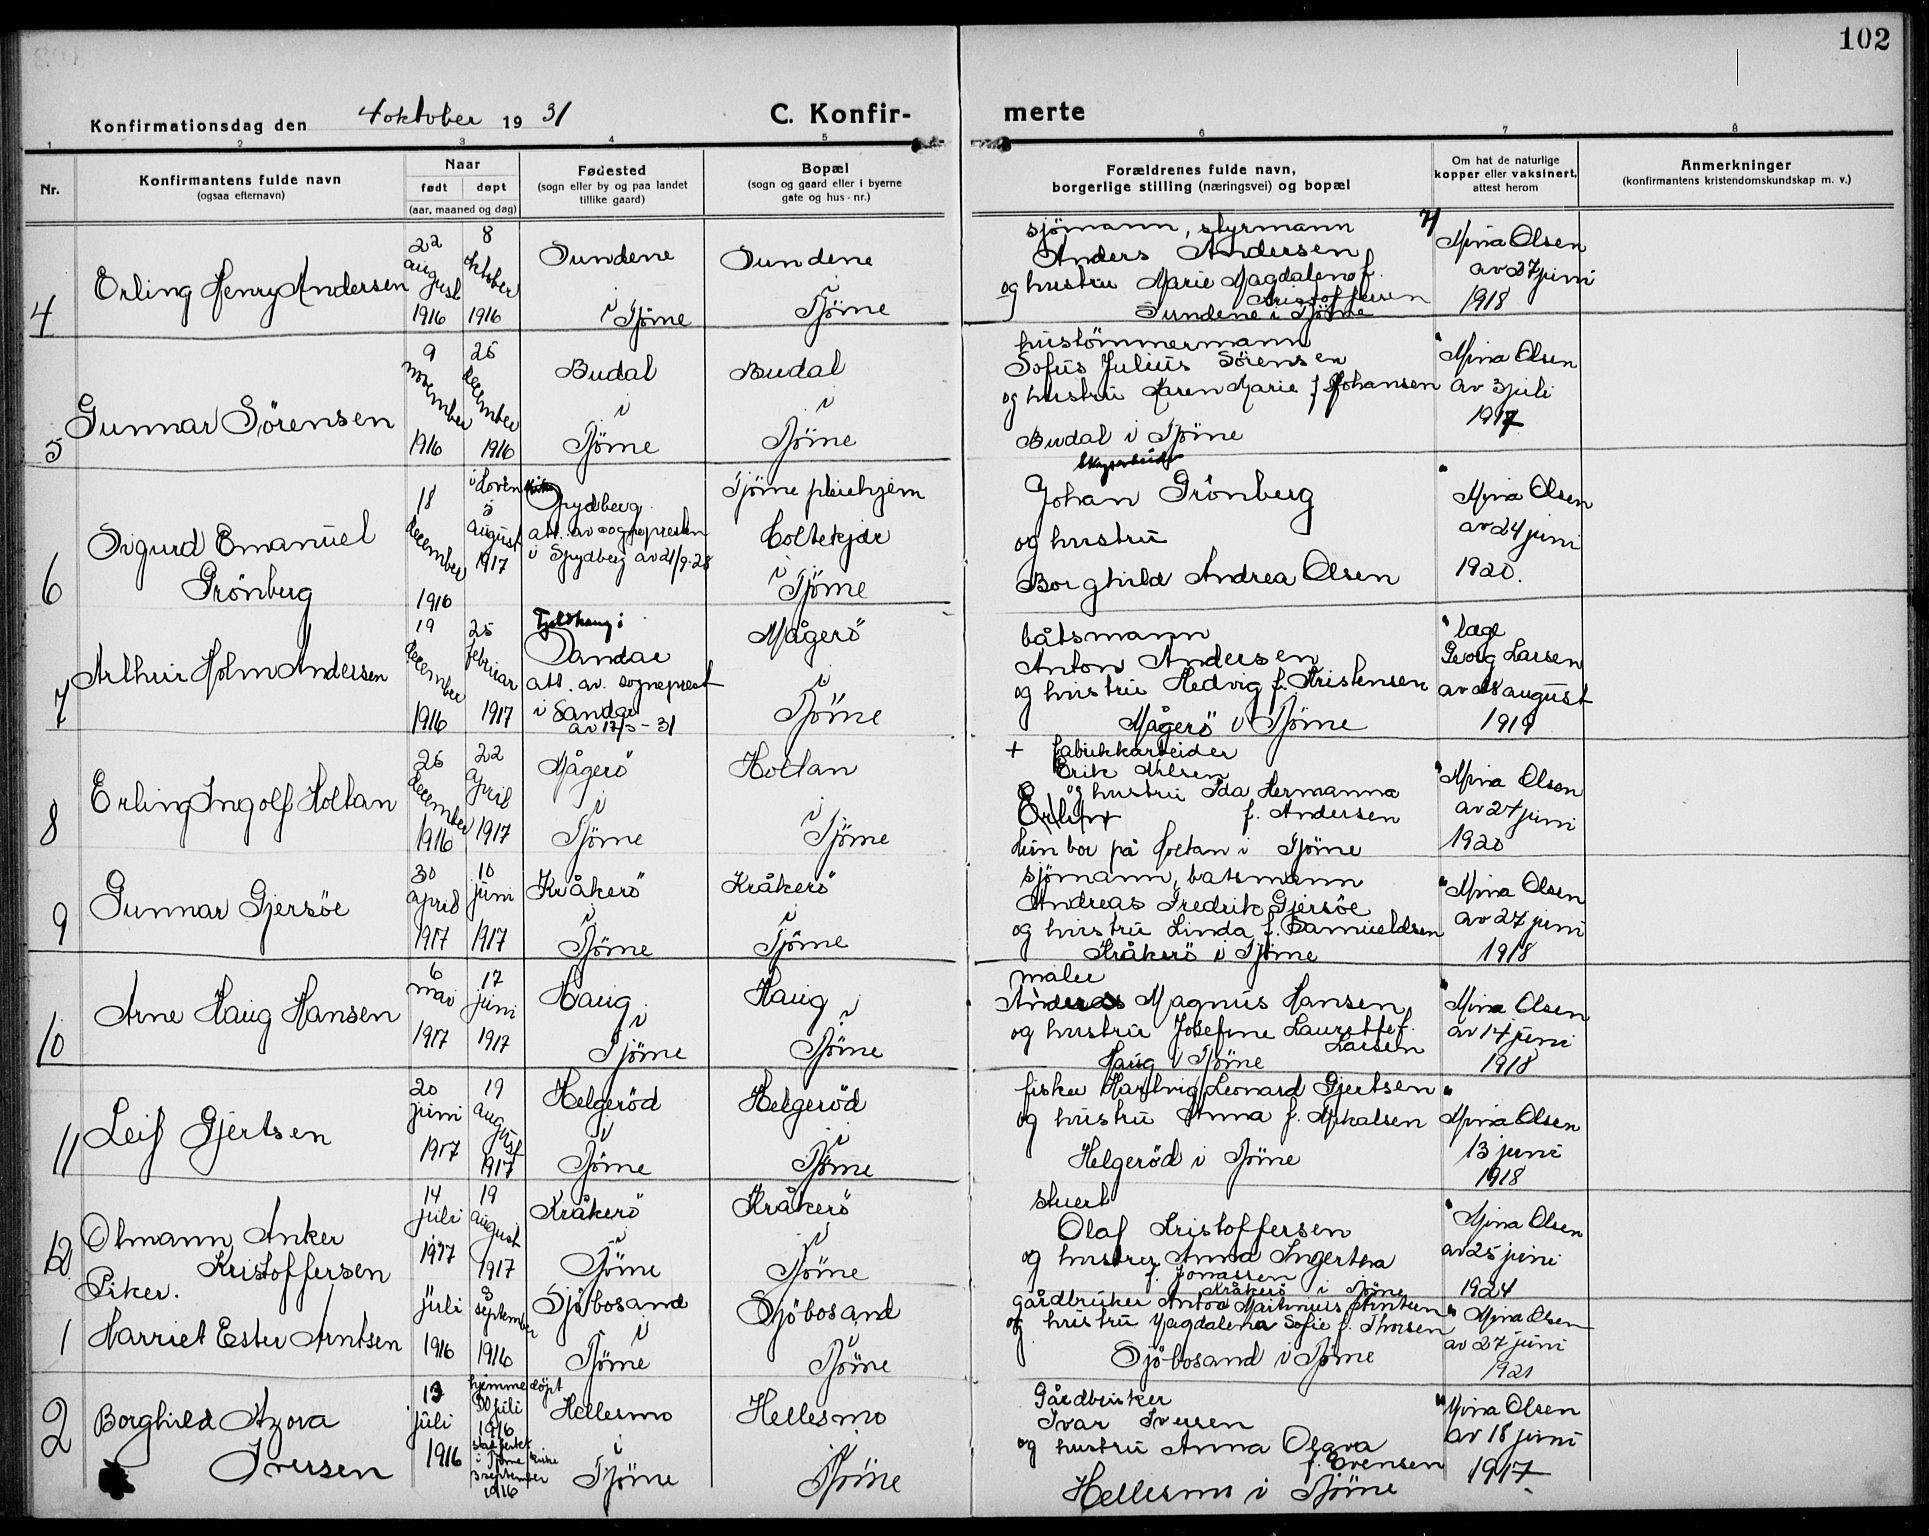 102
Konfirmationsdag den 4 oktober 1931 C. Konfirmerte
1 2 3 4 5 6 7 8
Nr.
Konfirmantens fulde navn
(ogsaa efternavn)
Naar
født døpt
(aar, maaned og dag)
Fødested
(sogn eller by og paa landet
tillike gaard)
Bopæl
(sogn og gaard eller i byerne
gate og hus-nr.)
Forældrenes fulde navn,
borgerlige stilling (næringsvei) og bopæl
Om hat de naturlige
kopper eller vaksinert,
attest herom
Anmerkninger
(konfirmantens kristendomskundskap m. v.)
4
Erling Henry Andersen
22 august 1916
8 oktober 1916
Sundene
i Tjöme
Sundene
i
Tjöme
sjömann, styrmann
Anders Andersen
og hustru Marie Magdalene f.
Kristoffersen
Sundene i Tjöme
Mina Olsen
av 27 juni
1918
5
Gunnar Sörensen
9 november 1916
26 december 1916
Budal
i
Tjöme
Budal
i
Tjöme
hustömmermann
Sofus Julius Sörensen
og hustru Karen Marie f. Johansen
Budal i Tjöme
" Mina Olsen
av 3 juli
1917
6
Sigurd Emanuel
Grönberg
18 december 1916
5 august 1917
Spydberg
att. av sognepresten
i Spydberg av 21/9-28
Tjöme pleiehjem
Coltekjær
i
Tjöme
Skogsarbeider
Johan Grönberg
og hustru
Borghild Andrea Olsen
" Mina Olsen
av 24 juni
1920.
7
Arthur Holm Andersen
19 december 1916
25 februar 1917
Sandar
att. av. sogneprest
i Sandar
av 17/3-31
Mågerö
i
Tjöme
båtsmann
Anton Andersen
og hustru Hedvig f. Kristensen
Mågerö i Tjöme
" læge
Georg Larsen
av 28 august
1919
8
Erling Ingolf Holtan
26 december 1916
22 April 1917
Mågerö
i
Tjöme
Holtan
i
Tjöme
+ fabrikkarbeider
Erik Nilsen
og hustru Ida Hermanna
f. Andersen
hun bor på Holtan i Tjöme
" Mina Olsen
av 27 juni
1920
9
Gunnar Gjersöe
30 april 1917
10 juni 1917
Kråkerö
i
Tjöme
Kråkerö
i
Tjöme
sjömann, batsmann
Andreas Fredrik Gjersöe
og hustru Linda f. Samueldsen
Kråkerö i Tjöme
" Mina Olsen
av 27 juni
1918
10
Arne Haug Hansen
6 mai 1917
17 juni 1917
Haug
i
Tjöme
Haug
i
Tjöme
maler
Anders Magnus Hansen
og hustru Josefine Laurette f.
Larsen
Haug i Tjöme
" Mina Olsen
av 14 juni
1918
11
Leif Gjertsen
20 juni 1917
19 august 1917
Helgeröd
i
Tjöme
Helgeröd
i
Tjöme
fisker Hartvig Leonard Gjertsen
og hustru Anna f. Mikalsen
Helgeröd i Tjöme
" Mina Olsen
13 juni
1918
12
Otmann Anker
Kristoffersen
14 juli 1917
19 august 1917
Kråkerö
i
Tjöme
Kråkerö
i
Tjöme
stuert
Olaf Kristoffersen
og hustru Anna Ingertha
f. Jonassen
Kråkerö i Tjöme
" Mina Olsen
av 25 juni
1924
Piker.
1
Harriet Ester Arntsen
juli 1916
3 september 1916
Sjöbosand
i
Tjöme
Sjöbosand
i
Tjöme
gårdbruker Anton Martinius Arntsen
og hustru Magdalena Sofie f. Thorsen
Sjöbosand i Tjöme
" Mina Olsen
av 27 juni
1921
2
Borghild Azora
Iversen
13 juli 1916
hjemmedöpt
30 juli
1916
stadfestet
i Tjöme kirke
3 september
1916
Hellesmo
i
Tjöme
Hellesmo
i
Tjöme
Gårdbruker
Ivar Iversen
og hustru Anna Olava
f. Evensen
Hellesmo i Tjöme
" Mina Olsen
av 18 juni
1917